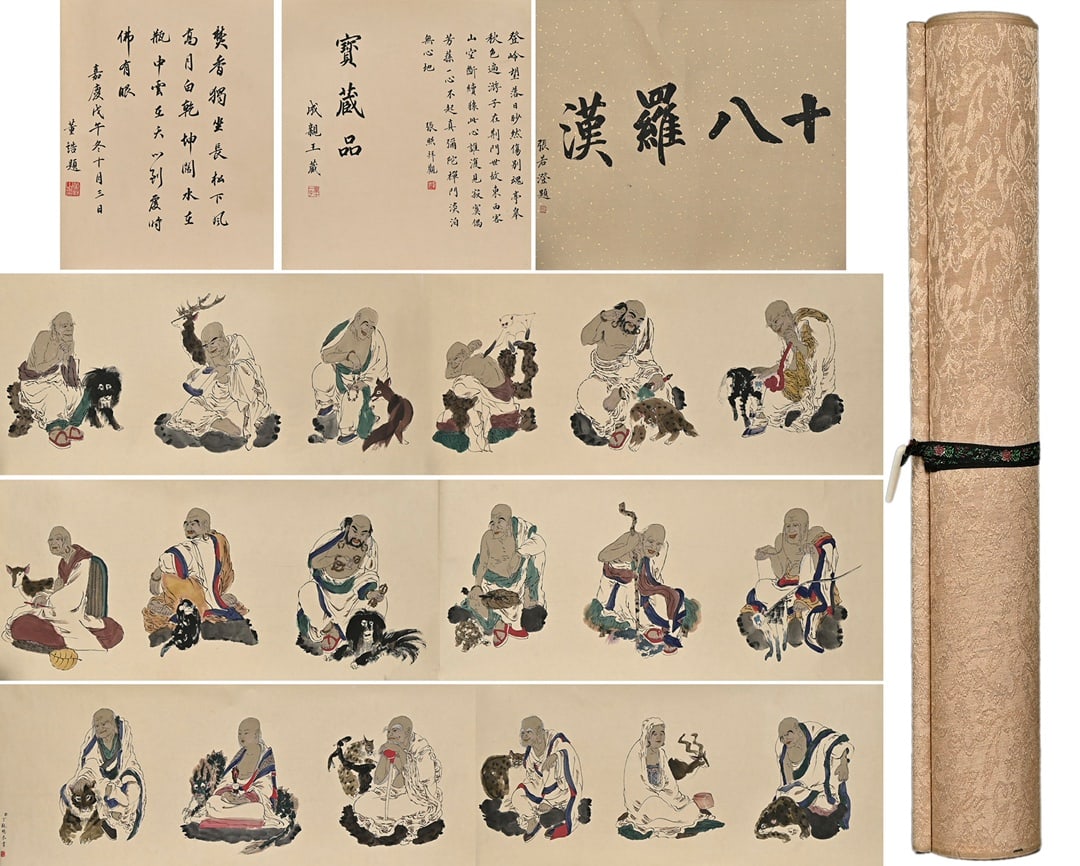 十八羅漢
張若澄題
登岭望落日眇然傷別魂亭皋
秋色遍游子在荆門世故東西客
山空斷續猿此心誰復見寂寞偶
芳蓀一心不起真彌陀禪門淡泊
無心地
張照拜觀
寶藏品
成親王藏
焚香獨坐長松下風
高月白乾坤闊水在
瓶中雲在天以到處時
佛有眼
嘉慶戊午冬十月三日
董誥題